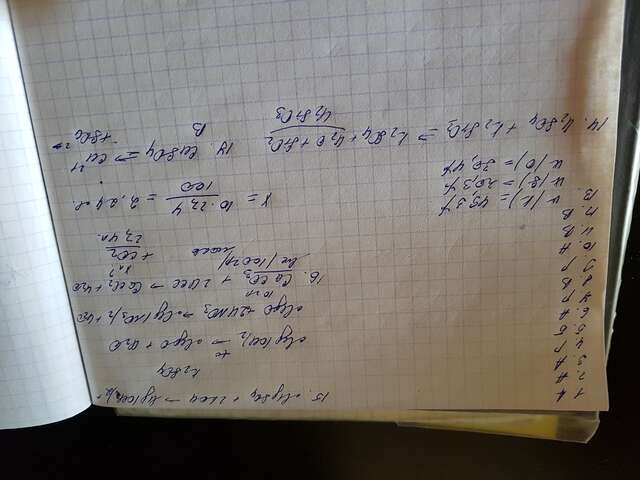 1. А
2. А
3. А
4. Г
5. Б
6. А
7. Г
8. В
9. Г
10. А
11. В
12. В
13.
w(S) = 20,3%
w(O) = 30,4%
14. H₂SO₄ + K₂SiO₃ → K₂SO₄ + H₂O + SiO₂
H₂SiO₃
15. MgSO₄ + 2KOH → Mg(OH)₂
K₂SO₄
Mg(OH)₂ → MgO + H₂O
MgO + 2HNO₃ → Mg(NO₃)₂ + H₂O
16. CaCO₃ + 2HCl → CaCl₂ + H₂O
+ CO₂
22,4л.
x = 10·22,4 / 100 = 2,24 л.
17. CuSO₄ → Cu²⁺
+ SO₄²⁻
В